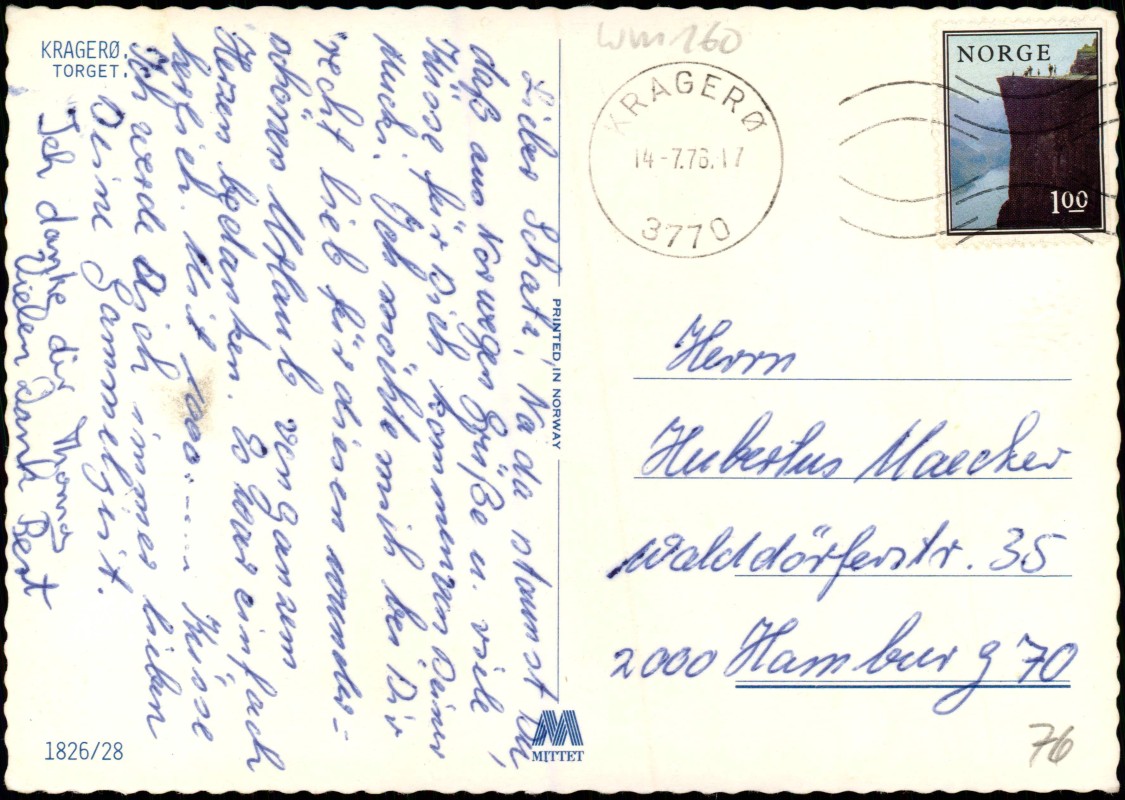 KRAGERØ.
TORGET.
Lieber Schatz, Na da staunst Du,
daß aus Norwegen Grüße u. viele
Küsse für Dich kommen von Deiner
Mucki. Ich möchte mich bei Dir
recht lieb für diesen wunder-
schönen Urlaub von ganzem
Herzen bedanken. Es war einfach
herrlich. Mit 1000 ...... Küsse
Ich werde Dich immer lieben
Deine
Ich danke dir Thomas
Vielen Dank Bert
1826/28
PRINTED IN NORWAY
MITTET
wm 160
KRAGERØ
14-7.76.17
3770
NORGE
100
Herrn
Hubertus Maecker
Walddörferstr. 35
2000 Hamburg 70
76